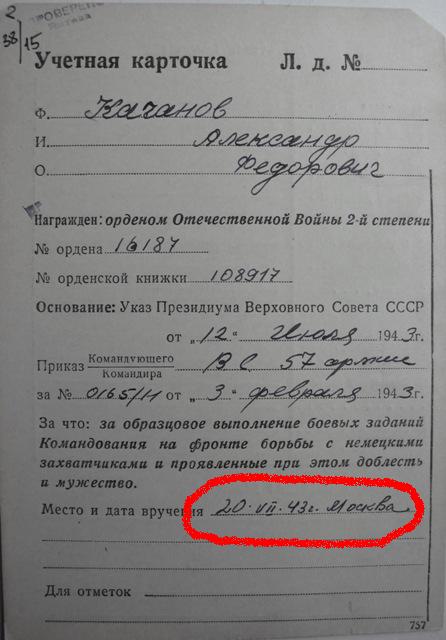 2
38/15
ПРОВЕРЕНО
Учетная карточка Л. д. №
Ф. Качанов
И. Александр
О. Федорович
Награжден: орденом Отечественной Войны 2-й степени
№ ордена 16187
№ орденской книжки 108917
Основание: Указ Президиума Верховного Совета СССР
от „12“ Июля 1943г.
Приказ Командующего
Командира ВС 57 армии
за № 0165/Н от „3“ февраля 1943г.
За что: за образцовое выполнение боевых заданий
Командования на фронте борьбы с немецкими
захватчиками и проявленные при этом доблесть
и мужество.
Место и дата вручения 20.VII.43г. Москва
Для отметок
757